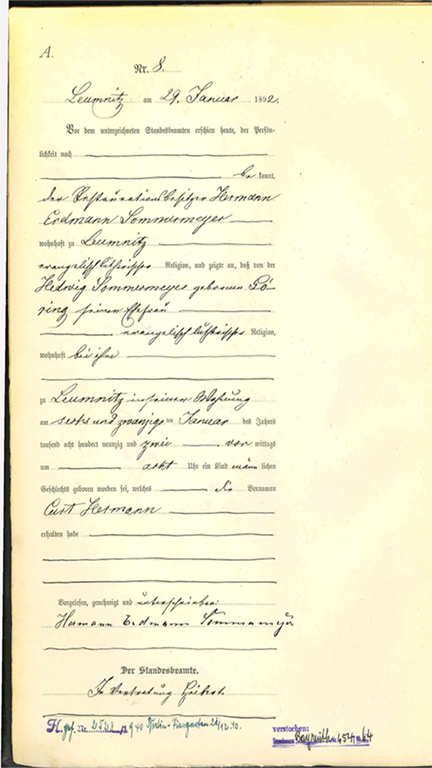 A.
Nr. 8.
Leumnitz am 29. Januar 1892.
Vor dem unterzeichneten Standesbeamten erschien heute, der Persön-
lichkeit nach
be kannt,
der Restaurationsbesitzer Hermann
Erdmann Sommermeyer
wohnhaft zu Leumnitz
evangelisch lutherischer Religion, und zeigte an, daß von der
Hedwig Sommermeyer geborenen Gö-
ring seiner Ehefrau
evangelisch lutherischer Religion,
wohnhaft bei ihm
zu Leumnitz in seiner Wohnung
am sechs und zwanzigsten Januar des Jahres
tausend acht hundert neunzig und zwei vor mittags
um acht Uhr ein Kind männ lichen
Geschlechts geboren worden sei, welches die Vornamen
Curt Hermann
erhalten habe
Vorgelesen, genehmigt und unterschrieben:
Hermann Erdmann Sommermeyer
Der Standesbeamte.
In Vertretung
H. gef. Nr. 1940 Berlin-Tiergarten
verstorben:
Bayreuth